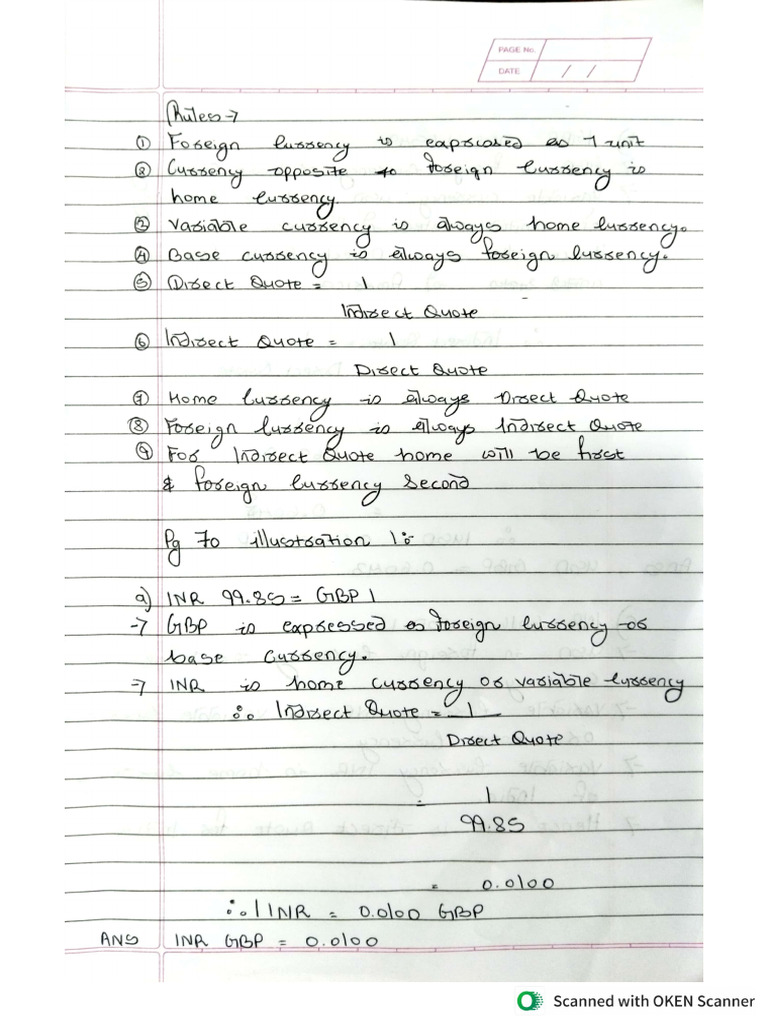 PAGE No.
DATE / /
Rules →
① Foreign Currency is expressed as 1 unit
② Currency opposite to foreign currency is
home currency.
③ Variable currency is always home currency.
④ Base currency is always foreign currency.
⑤ Direct Quote = 1
Indirect Quote
⑥ Indirect Quote = 1
Direct Quote
⑦ Home Currency is always Direct Quote
⑧ Foreign Currency is always Indirect Quote
⑨ For Indirect Quote home will be first
& foreign currency second
Pg 70 illustration 1:-
a) INR 99.85 = GBP 1
→ GBP is expressed as foreign currency or
base currency.
→ INR is home currency or variable currency
∴ Indirect Quote = 1
Direct Quote
= 1
99.85
= 0.0100
∴ 1 INR = 0.0100 GBP
ANS INR GBP = 0.0100
Scanned with OKEN Scanner